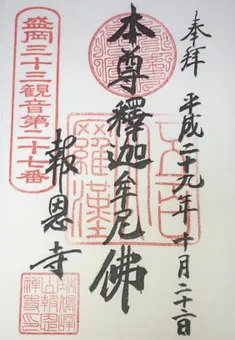 奉拝
平成二十九年十月二十二日
本尊釋迦牟尼佛
報恩寺
盛岡三十三観音第二十七番
五百
羅漢